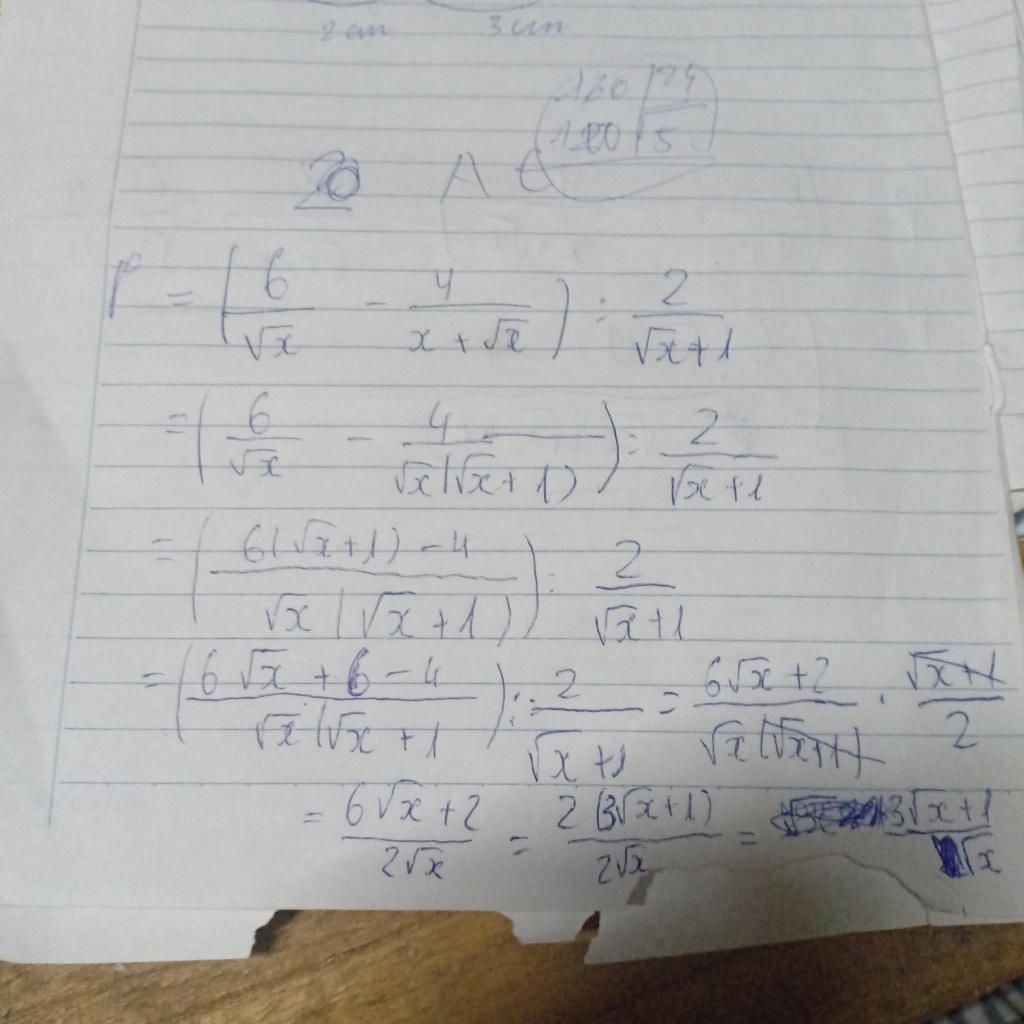 3 cm
120 | 24
5
20 A C
P = (6/√x - 4/(x + √x)) : 2/(√x+1)
= (6/√x - 4/(√x(√x+1))) : 2/(√x+1)
= ((6(√x+1) - 4)/(√x(√x+1))) : 2/(√x+1)
= ((6√x + 6 - 4)/(√x(√x+1)) : 2/(√x+1) = (6√x+2)/(√x(√x+1)) . (√x+1)/2
= (6√x+2)/(2√x) = 2(3√x+1)/(2√x) = (3√x+1)/√x